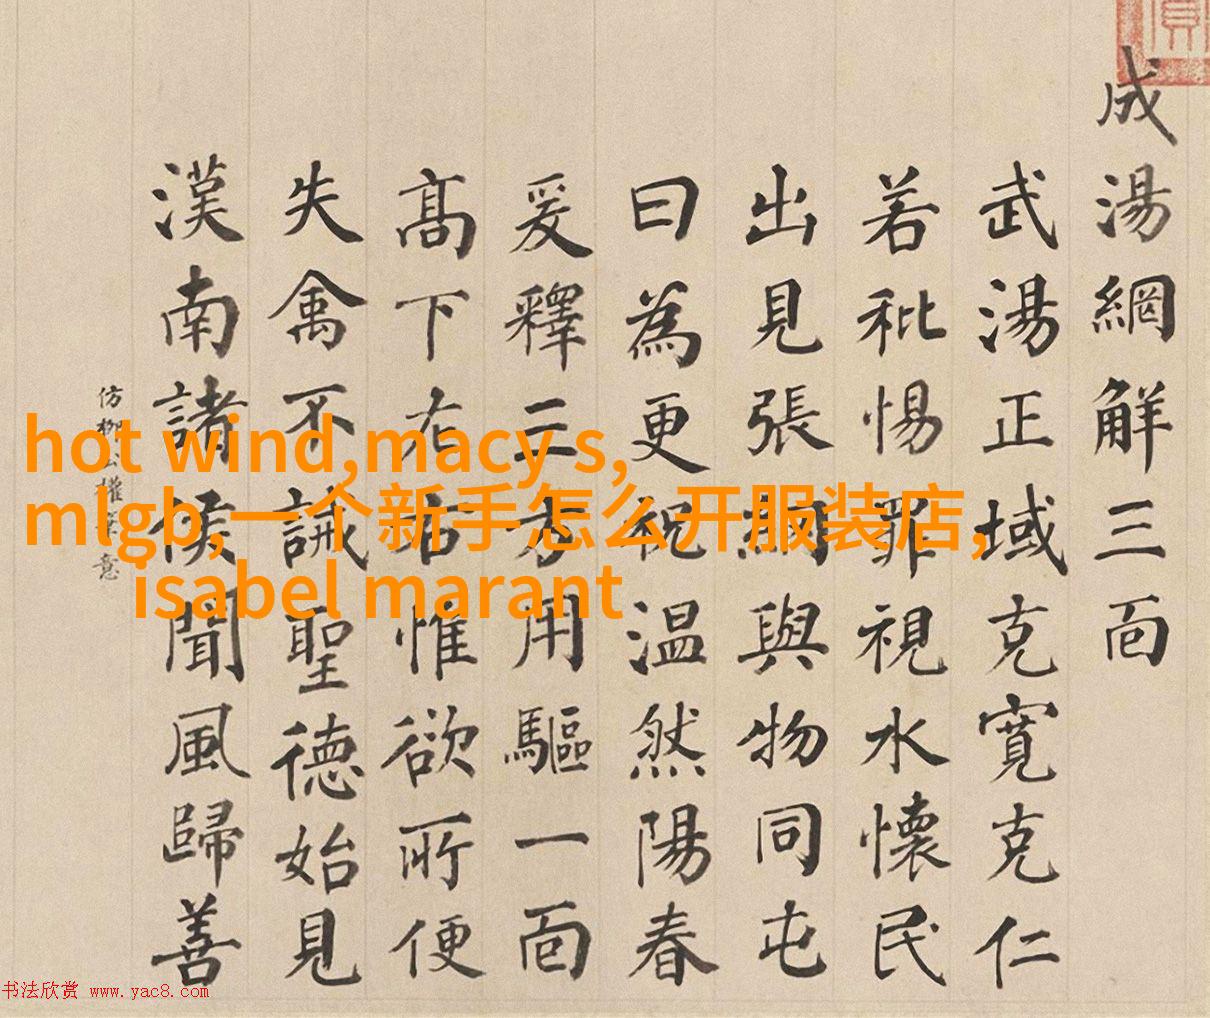 成湯網解三面
武湯正域克寬克仁
若秕惕罪視水懷民
出見張網與物同屯
曰為更祝温然陽春
爰釋三方用驅一面
髙下左右惟欲所便
失禽不誡聖德始見
漢南諸侯聞風歸善
仿柳公權筆意
hot wind,macy s,
mlgb,一个新手怎么开服装店,
isabel marant
书法欣赏 www.yac8.com